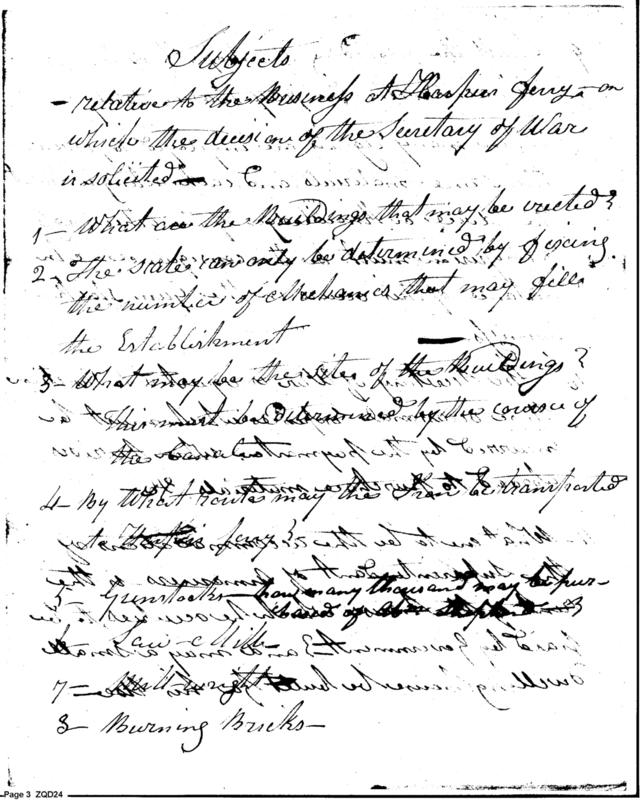 Subjects
- relative to the Business at Harpers ferry - on
which the decision of the Secretary of War
is solicited -
1 - What are the Buildings that may be erected?
2 - The scale can only be determined by fixing
the number of Mechanics that may fill
the Establishment
3 - What may be the sites of the Buildings?
This must be determined by the course of
the Canal
4 - By What route may the Iron be transported
to Harpers ferry?
5 - Gunstocks - how many thousand may be pur-
chased of
Saw-Mill -
7 - Mill-wright
8 - Burning Bricks -
Page 3 ZQD24